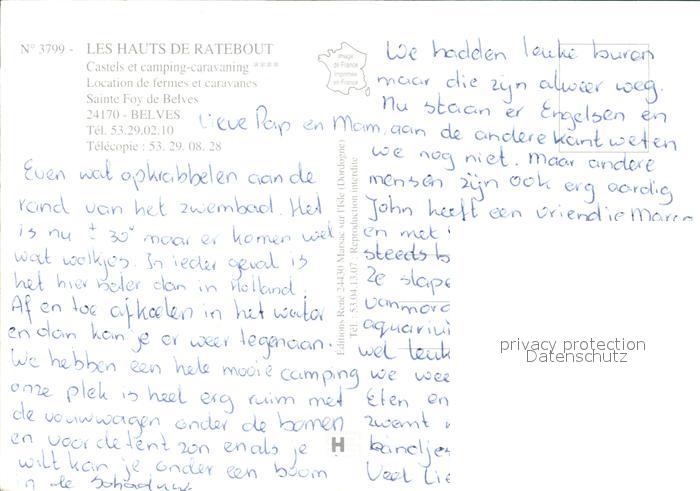 N° 3799 - LES HAUTS DE RATEBOUT
Castels et camping-caravaning ****
Location de fermes et caravanes
Sainte Foy de Belves
24170 - BELVES
Tél. 53.29.02.10
Télécopie : 53. 29. 08. 28
Image
de France
imprimée
en France
Lieve Pap en Mam,
Even wat opkrabbelen aan de
rand van het zwembad. Het
is nu ± 30° maar er komen wel
wat wolkjes. In ieder geval is
het hier beter dan in Holland.
Af en toe afkoelen in het water
en dan kan je er weer tegenaan.
We hebben een hele mooie camping
onze plek is heel erg ruim met
de vouwwagen onder de bomen
en voor de tent zon en als je
wilt kan je onder een boom
in de schaduw
Editions René 24430 Marsac sur l'Isle (Dordogne)
Tél. : 53.04.13.07 - Reproduction interdite
We hadden leuke buren
maar die zijn alweer weg.
Nu staan er Engelsen en
aan de andere kant weten
we nog niet. Maar andere
mensen zijn ook erg aardig
John heeft een vriendje
en met
steeds
2e
we
Eten en
zwemt
bandjes
Veel
privacy protection
Datenschutz
H